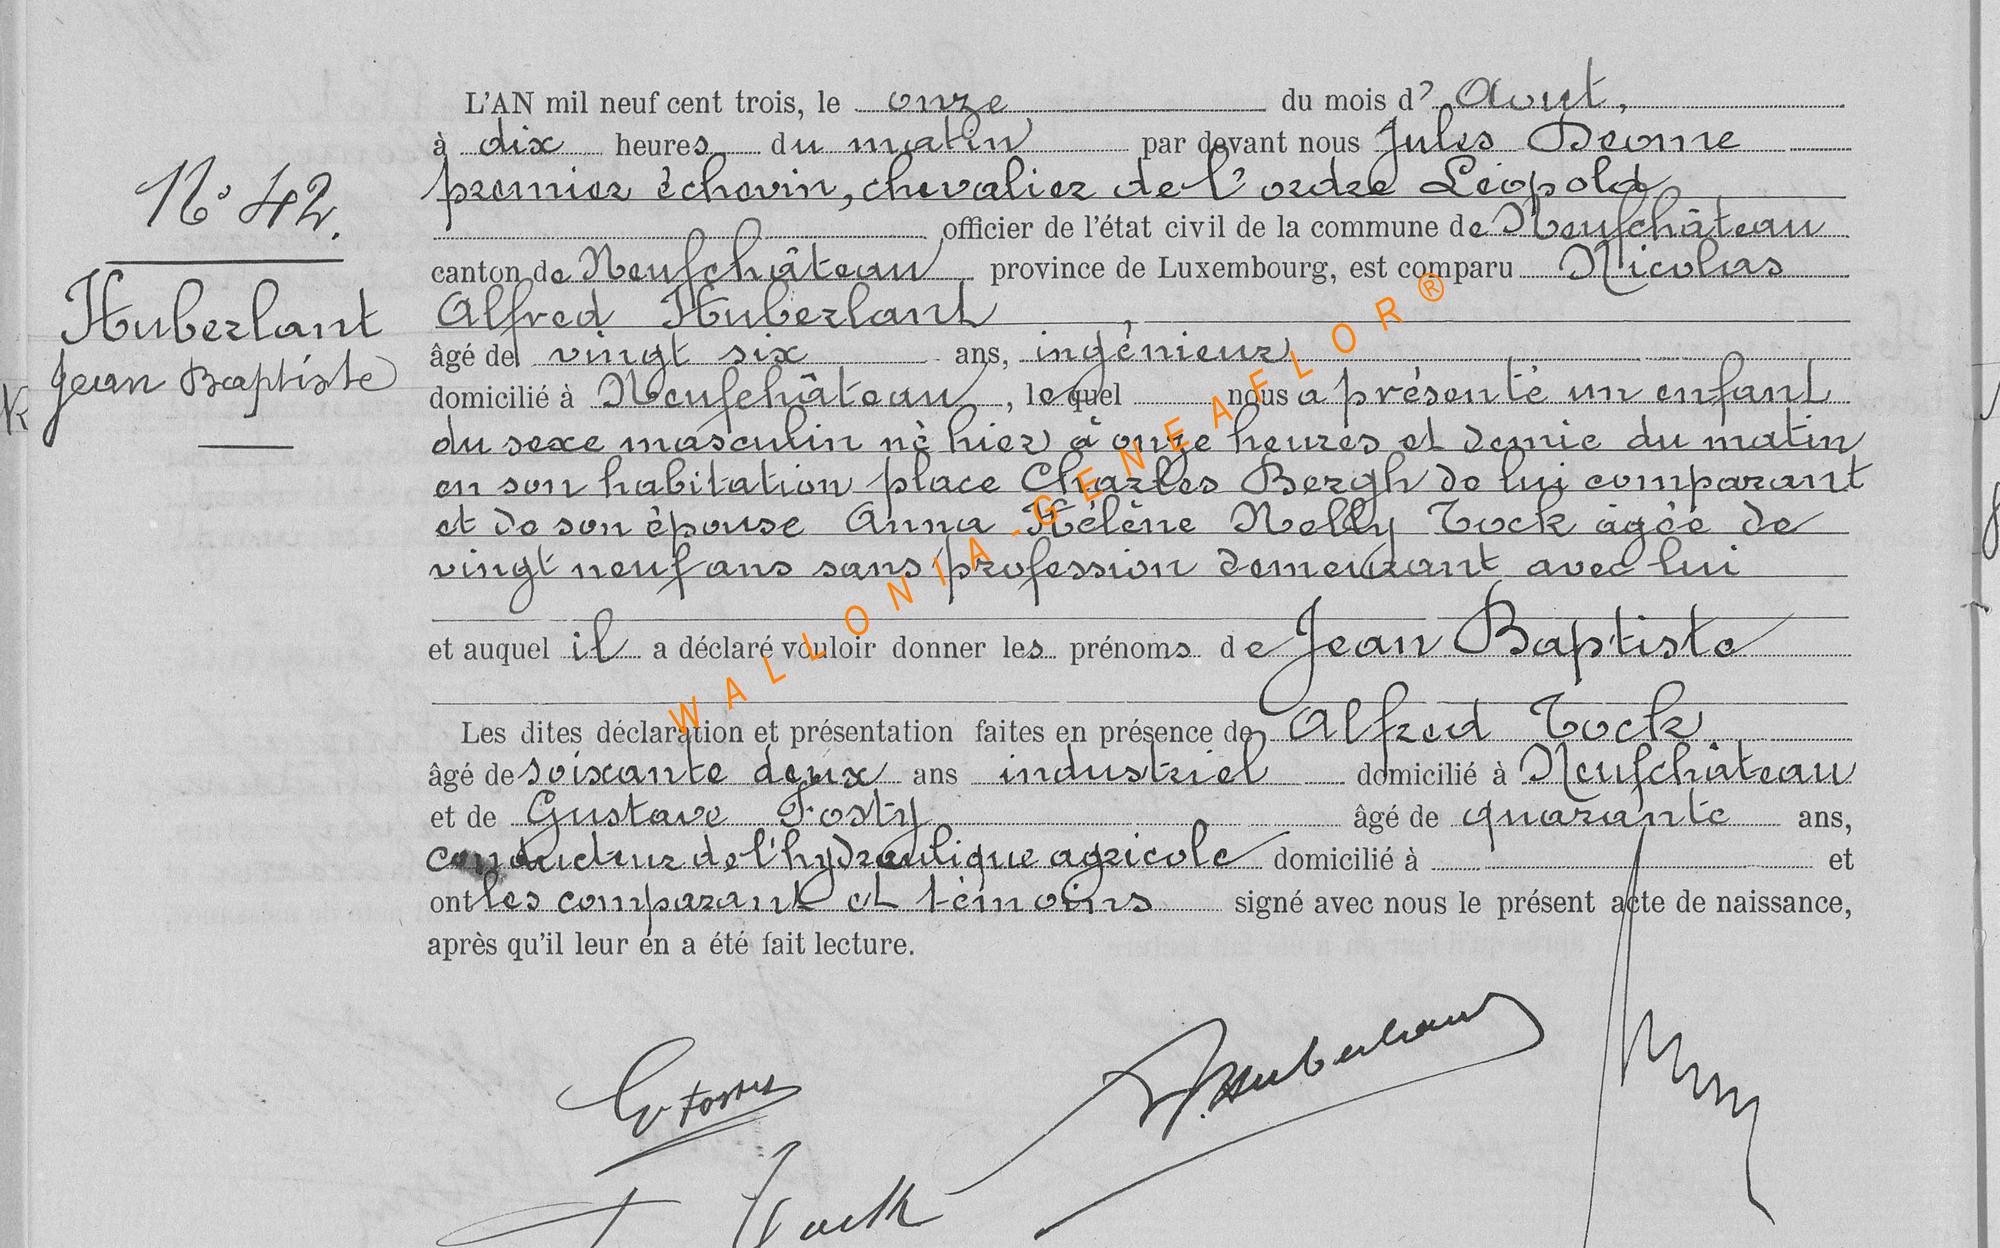 N° 42.
Huberlant
Jean Baptiste
L'AN mil neuf cent trois, le onze du mois d' Aout,
à dix heures du matin par devant nous Jules Deome
premier échevin, chevalier de l'ordre Léopold
officier de l'état civil de la commune de Neufchâteau
canton de Neufchâteau province de Luxembourg, est comparu Nicolas
Alfred Huberlant
âgé de vingt six ans, ingénieur
domicilié à Neufchâteau, lequel nous a présenté un enfant
du sexe masculin né hier à onze heures et demie du matin
en son habitation place Charles Bergh de lui comparant
et de son épouse Anna Hélène Nelly Tock agée de
vingt neuf ans sans profession demeurant avec lui
et auquel il a déclaré vouloir donner les prénoms de Jean Baptiste
Les dites déclaration et présentation faites en présence de Alfred Tock
âgé de soixante deux ans industriel domicilié à Neufchâteau
et de Gustave Fosty âgé de quarante ans,
conducteur de l'hydraulique agricole domicilié à et
ont les comparant et témoins signé avec nous le présent acte de naissance,
après qu'il leur en a été fait lecture.
WALLONIA-GENEAFLOR®
G Fosty
Huberlant
Tock